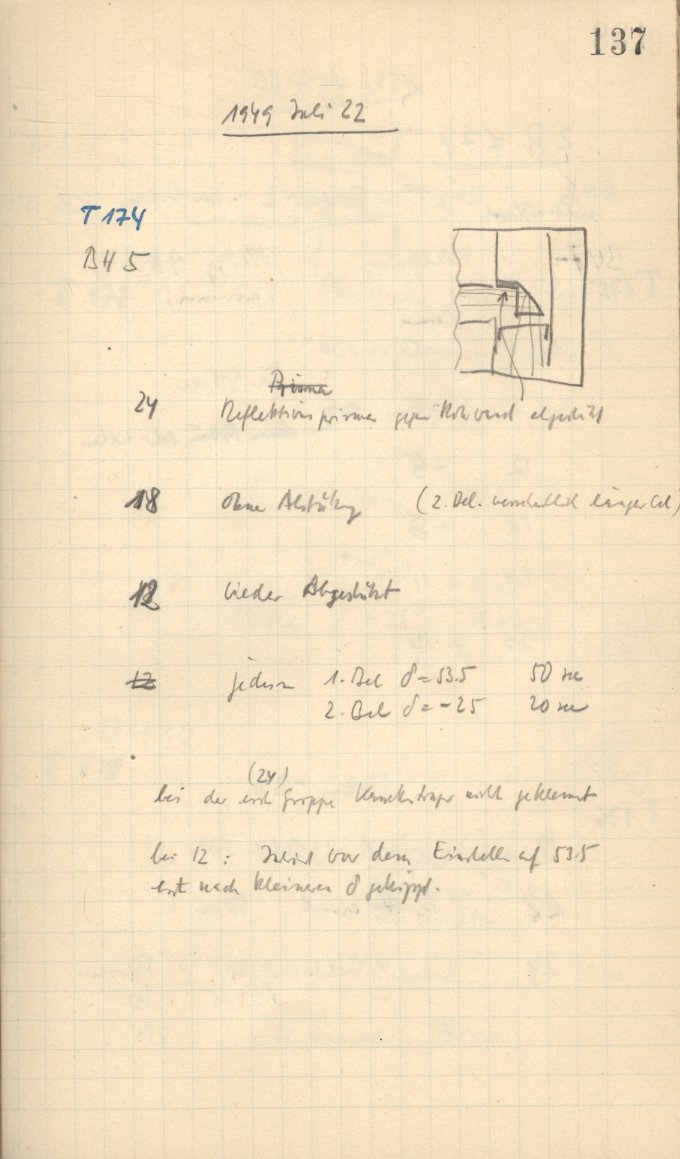 137
1949 Juli 22
T 174
BH 5
Prisma
24 Reflektionsprisma gegen Rohrwand abgestützt
18 ohne Abstützg (2. Bel. versehentlich länger bel)
12 wieder Abgestützt
12 jedesm 1. Bel δ = 53.5 50 sec
2. Bel δ = -25 20 sec
(24)
bei der erst Gruppe nicht geklemmt
bei 12 : vor dem Einstellen auf 53.5
erst nach kleineren δ gekippt.